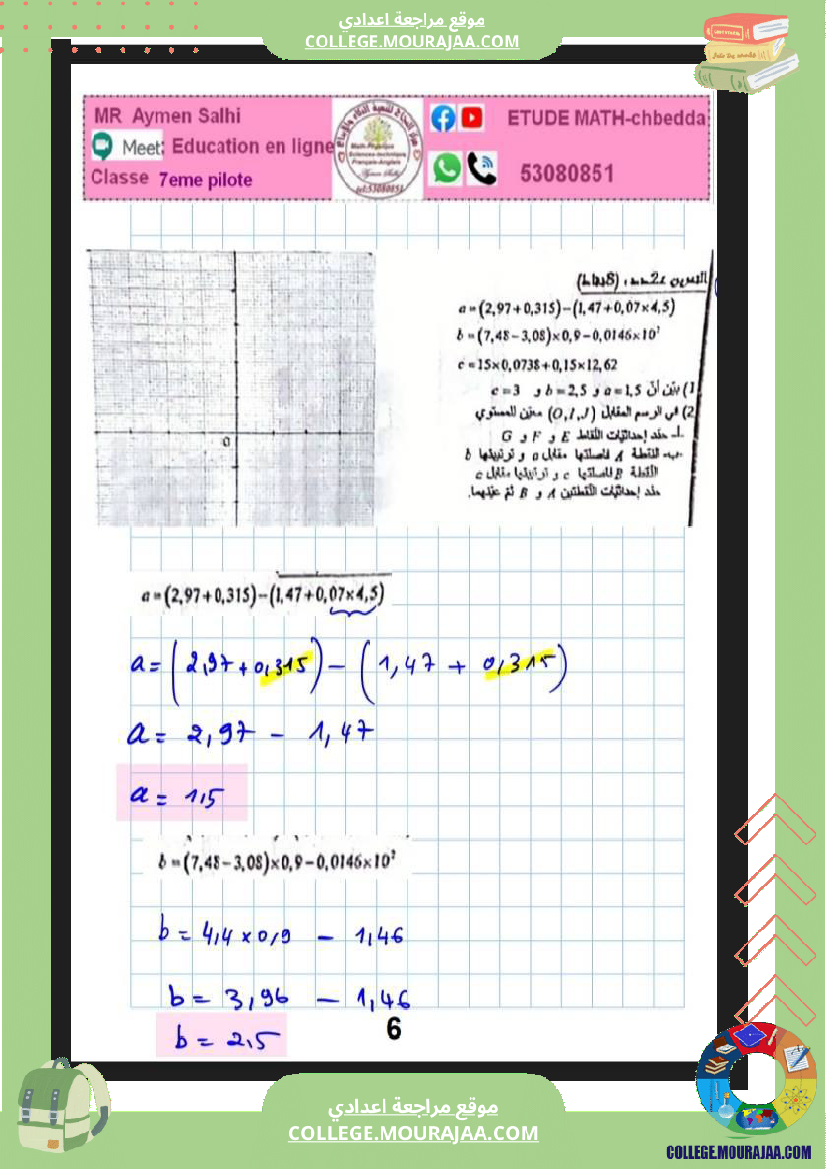 موقع مراجعة اعدادي
COLLEGE.MOURAJAA.COM
MR Aymen Salhi
Meet: Education en ligne
Classe 7eme pilote
ETUDE MATH-chbedda
53080851
a=(2,97+0,315)-(1,47+0,07×4,5)
b=(7,48-3,08)×0,9-0,0146×10²
c=15×0,0738+0,15×12,62
1) بيّن أنّ a=1,5 و b=2,5 و c=3
2) في الرسم المقابل (O,I,J) معيّن للمستوي
أ- حدّد إحداثيات النقاط E و F و G
ب- النقطة A فاصلتها مقابل a و ترتيبتها b
النقطة B فاصلتها c و ترتيبتها مقابل c
حدّد إحداثيات النقطتين A و B ثمّ عيّنهما.
0
a=(2,97+0,315)-(1,47+0,07×4,5)
a = (2,97 + 0,315) - (1,47 + 0,315)
a = 2,97 - 1,47
a = 1,5
b=(7,48-3,08)×0,9-0,0146×10²
b = 4,4 × 0,9 - 1,46
b = 3,96 - 1,46
b = 2,5
6
موقع مراجعة اعدادي
COLLEGE.MOURAJAA.COM
COLLEGE.MOURAJAA.COM